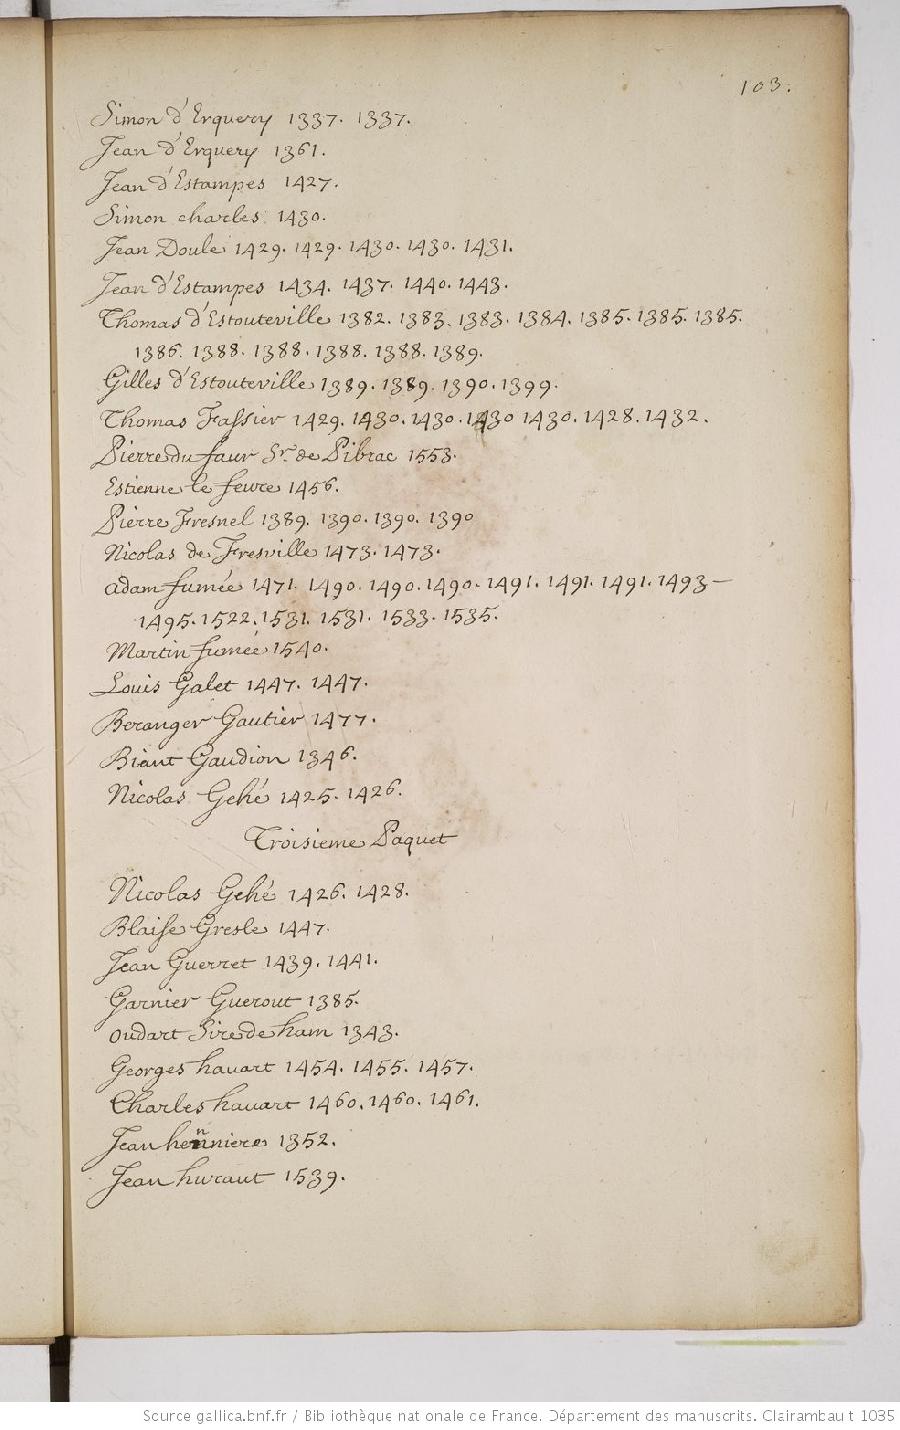 103.
Simon d'Erquery 1337. 1337.
Jean d'Erquery 1361.
Jean d'Estampes 1427.
Simon charles 1430.
Jean Doule 1429. 1429. 1430. 1430. 1431.
Jean d'Estampes 1434. 1437. 1440. 1443.
Thomas d'Estouteville 1382. 1383. 1383. 1384. 1385. 1385. 1385.
1386. 1388. 1388. 1388. 1388. 1389.
Gilles d'Estouteville 1389. 1389. 1390. 1399.
Thomas Fassier 1429. 1430. 1430. 1430 1430. 1428. 1432.
Pierre du faur Sr. de Pibrac 1553.
Estienne le feure 1456.
Pierre Fresnel 1389. 1390. 1390. 1390
Nicolas de Fresville 1473. 1473.
adam fumée 1471. 1490. 1490. 1490. 1491. 1491. 1491. 1493 —
1495. 1522. 1531. 1531. 1533. 1535.
Martin fumée 1540.
Louis Galet 1447. 1447.
Beranger Gautier 1477.
Biant Gaudion 1346.
Nicolas Gehé 1425. 1426.
Troisieme Paquet
Nicolas Gehé 1426. 1428.
Blaise Gresle 1447.
Jean Guerret 1439. 1441.
Garnier Guerout 1385.
oudart Sire de ham 1343.
Georges havart 1454. 1455. 1457.
Charles havart 1460. 1460. 1461.
Jean henniere 1352.
Jean huraut 1539.
Source gallica.bnf.fr / Bibliothèque nationale de France. Département des manuscrits. Clairambault 1035